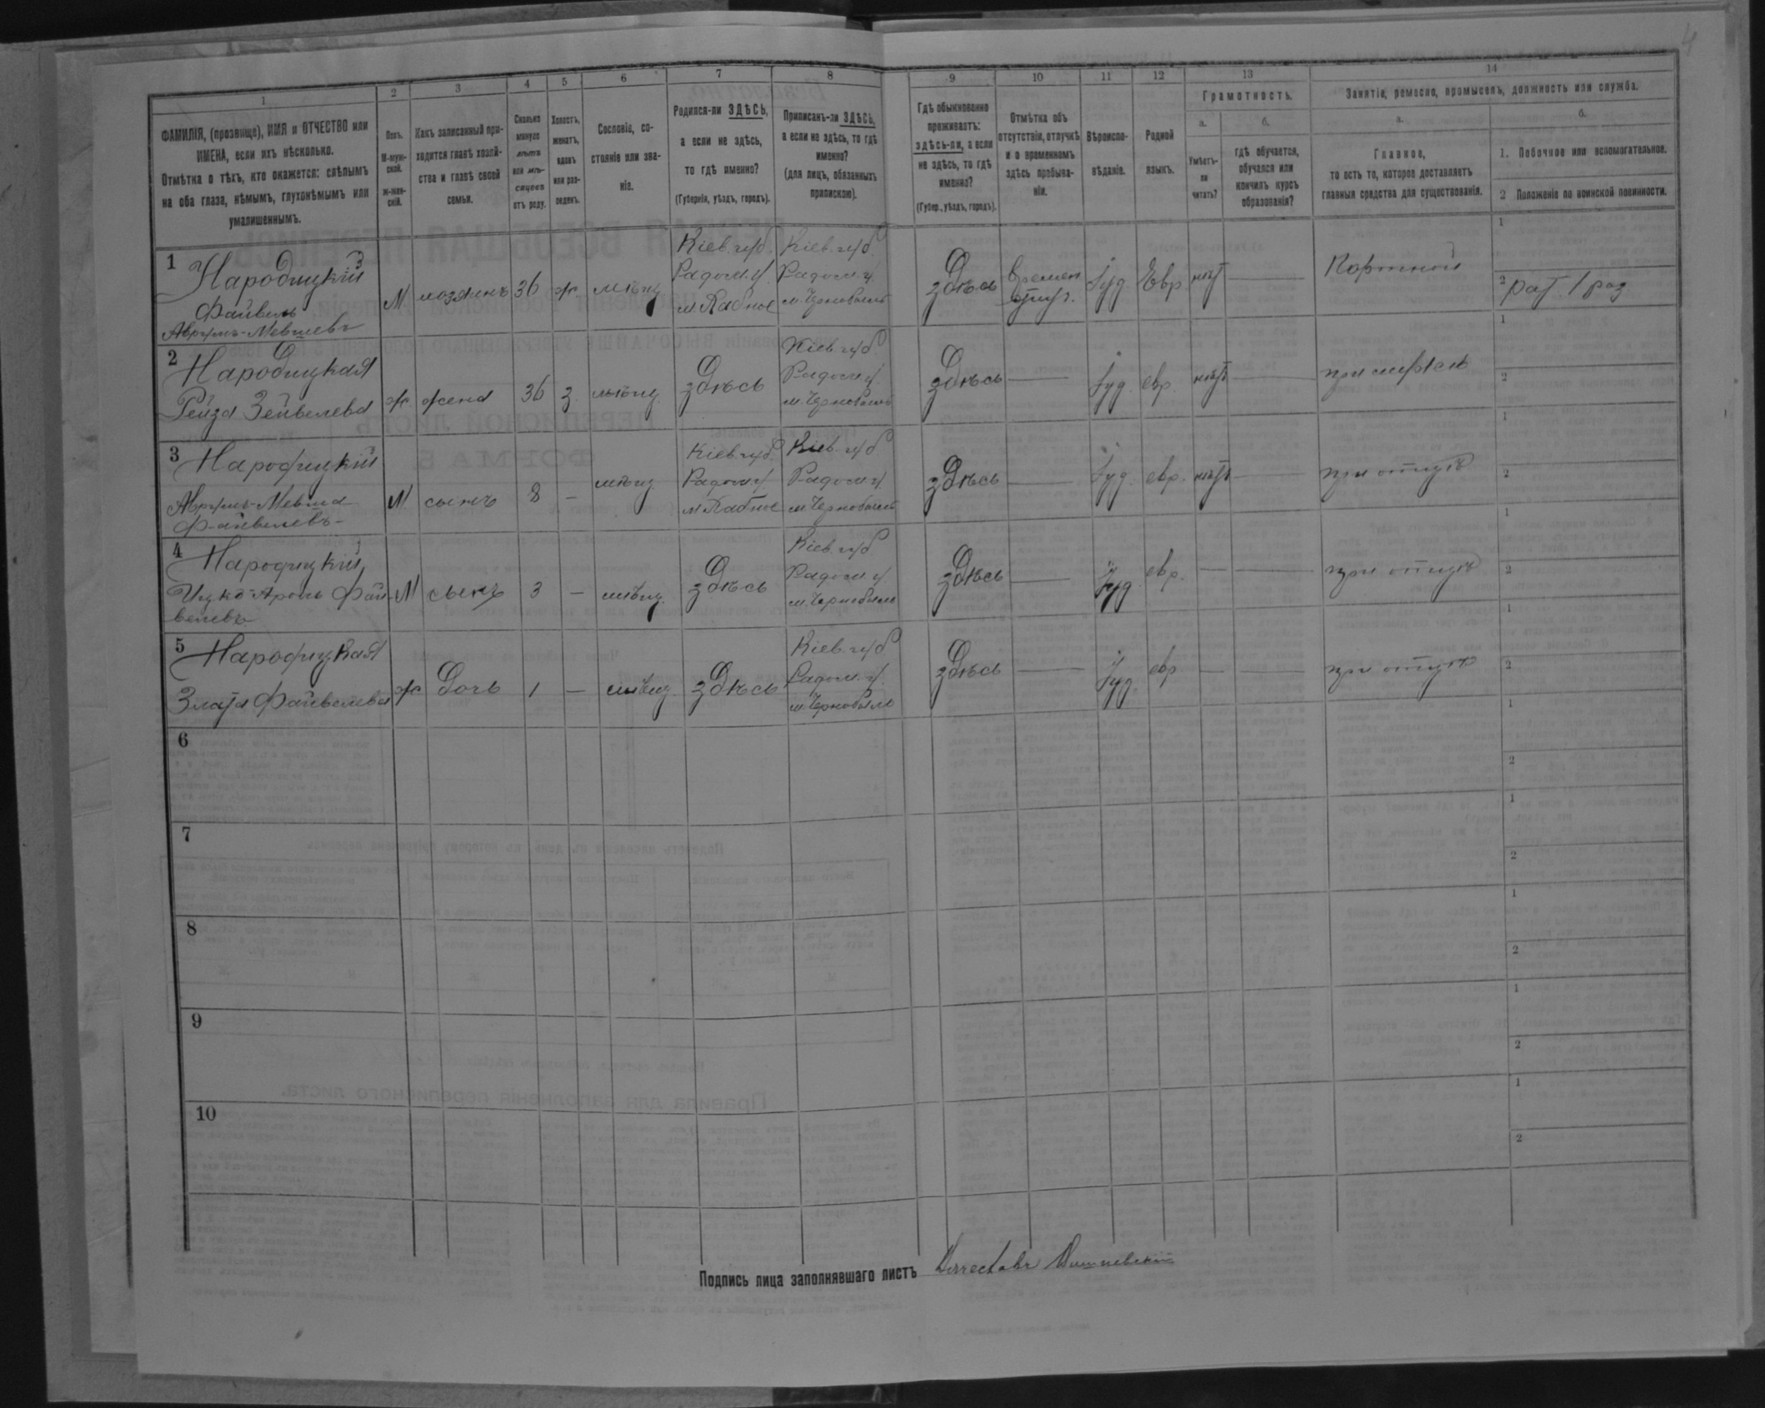 4
1
ФАМИЛІЯ, (прозвище), ИМЯ и ОТЧЕСТВО или
ИМЕНА, если ихъ нѣсколько.
Отмѣтка о тѣхъ, кто окажется: слѣпымъ
на оба глаза, нѣмымъ, глухонѣмымъ или
умалишеннымъ.
2
Полъ.
М-муж-
ской.
ж-жен-
скій.
3
Какъ записанный при-
ходится главѣ хозяй-
ства и главѣ своей
семьи.
4
Сколько
минуло
лѣтъ
или мѣ-
сяцевъ
отъ роду.
5
Холостъ,
женатъ,
вдовъ
или раз-
веденъ.
6
Сословіе, со-
стояніе или зва-
ніе.
7
Родился-ли ЗДѢСЬ,
а если не здѣсь,
то гдѣ именно?
(Губернія, уѣздъ, городъ).
8
Приписанъ-ли ЗДѢСЬ,
а если не здѣсь, то гдѣ
именно?
(для лицъ, обязанныхъ
припискою).
9
Гдѣ обыкновенно
проживаетъ:
здѣсь-ли, а если
не здѣсь, то гдѣ
именно?
(Губер., уѣздъ, городъ).
10
Отмѣтка объ
отсутствіи, отлучкѣ
и о временномъ
здѣсь пребыва-
ніи.
11
Вѣроиспо-
вѣданіе.
12
Родной
языкъ.
13
Грамотность.
а.
Умѣетъ-
ли
читать?
б.
гдѣ обучается,
обучался или
кончилъ курсъ
образованія?
14
Занятіе, ремесло, промыселъ, должность или служба.
а.
Главное,
то есть то, которое доставляетъ
главныя средства для существованія.
б.
1. Побочное или вспомогательное.
2 Положеніе по воинской повинности.
1
Народицкій
Файвель
Аврумъ-Мевшевъ
М
хозяинъ
36
ж.
мѣщ
Кіев. губ.
Радом. у
Кіев. губ
Радом. у
м. Чернобыль
здѣсь
Времен
отлуч.
Іуд
Евр
нѣт
Портной
1
2
рат 1 раз
2
Народицкая
Рейза Зейвелева
ж
жена
36
з.
мѣщ.
здѣсь
Кіев. губ
Радом. у
м. Чернобыль
здѣсь
Іуд.
евр.
нѣт
при мужѣ
1
2
3
Народицкій
Аврумъ-Мевша
Файвелевъ
М
сынъ
8
мѣщ
Кіев. губ.
Радом. у
Кіев. губ
Радом. у
м. Чернобыль
здѣсь
Іуд.
евр.
нѣт
при отцѣ
1
2
4
Народицкій
Ицко-Аронъ Фай-
велевъ
М
сынъ
3
мѣщ.
здѣсь
Кіев. губ
Радом. у
м. Чернобыль
здѣсь
Іуд.
евр.
при отцѣ
1
2
5
Народицкая
Злата Файвелева
ж
дочь
1
мѣщ.
здѣсь
Кіев. губ
Радом. у
м. Чернобыль
здѣсь
Іуд.
евр
при отцѣ
1
2
6
1
2
7
1
2
8
1
2
9
1
2
10
1
2
Подпись лица заполнявшаго листъ